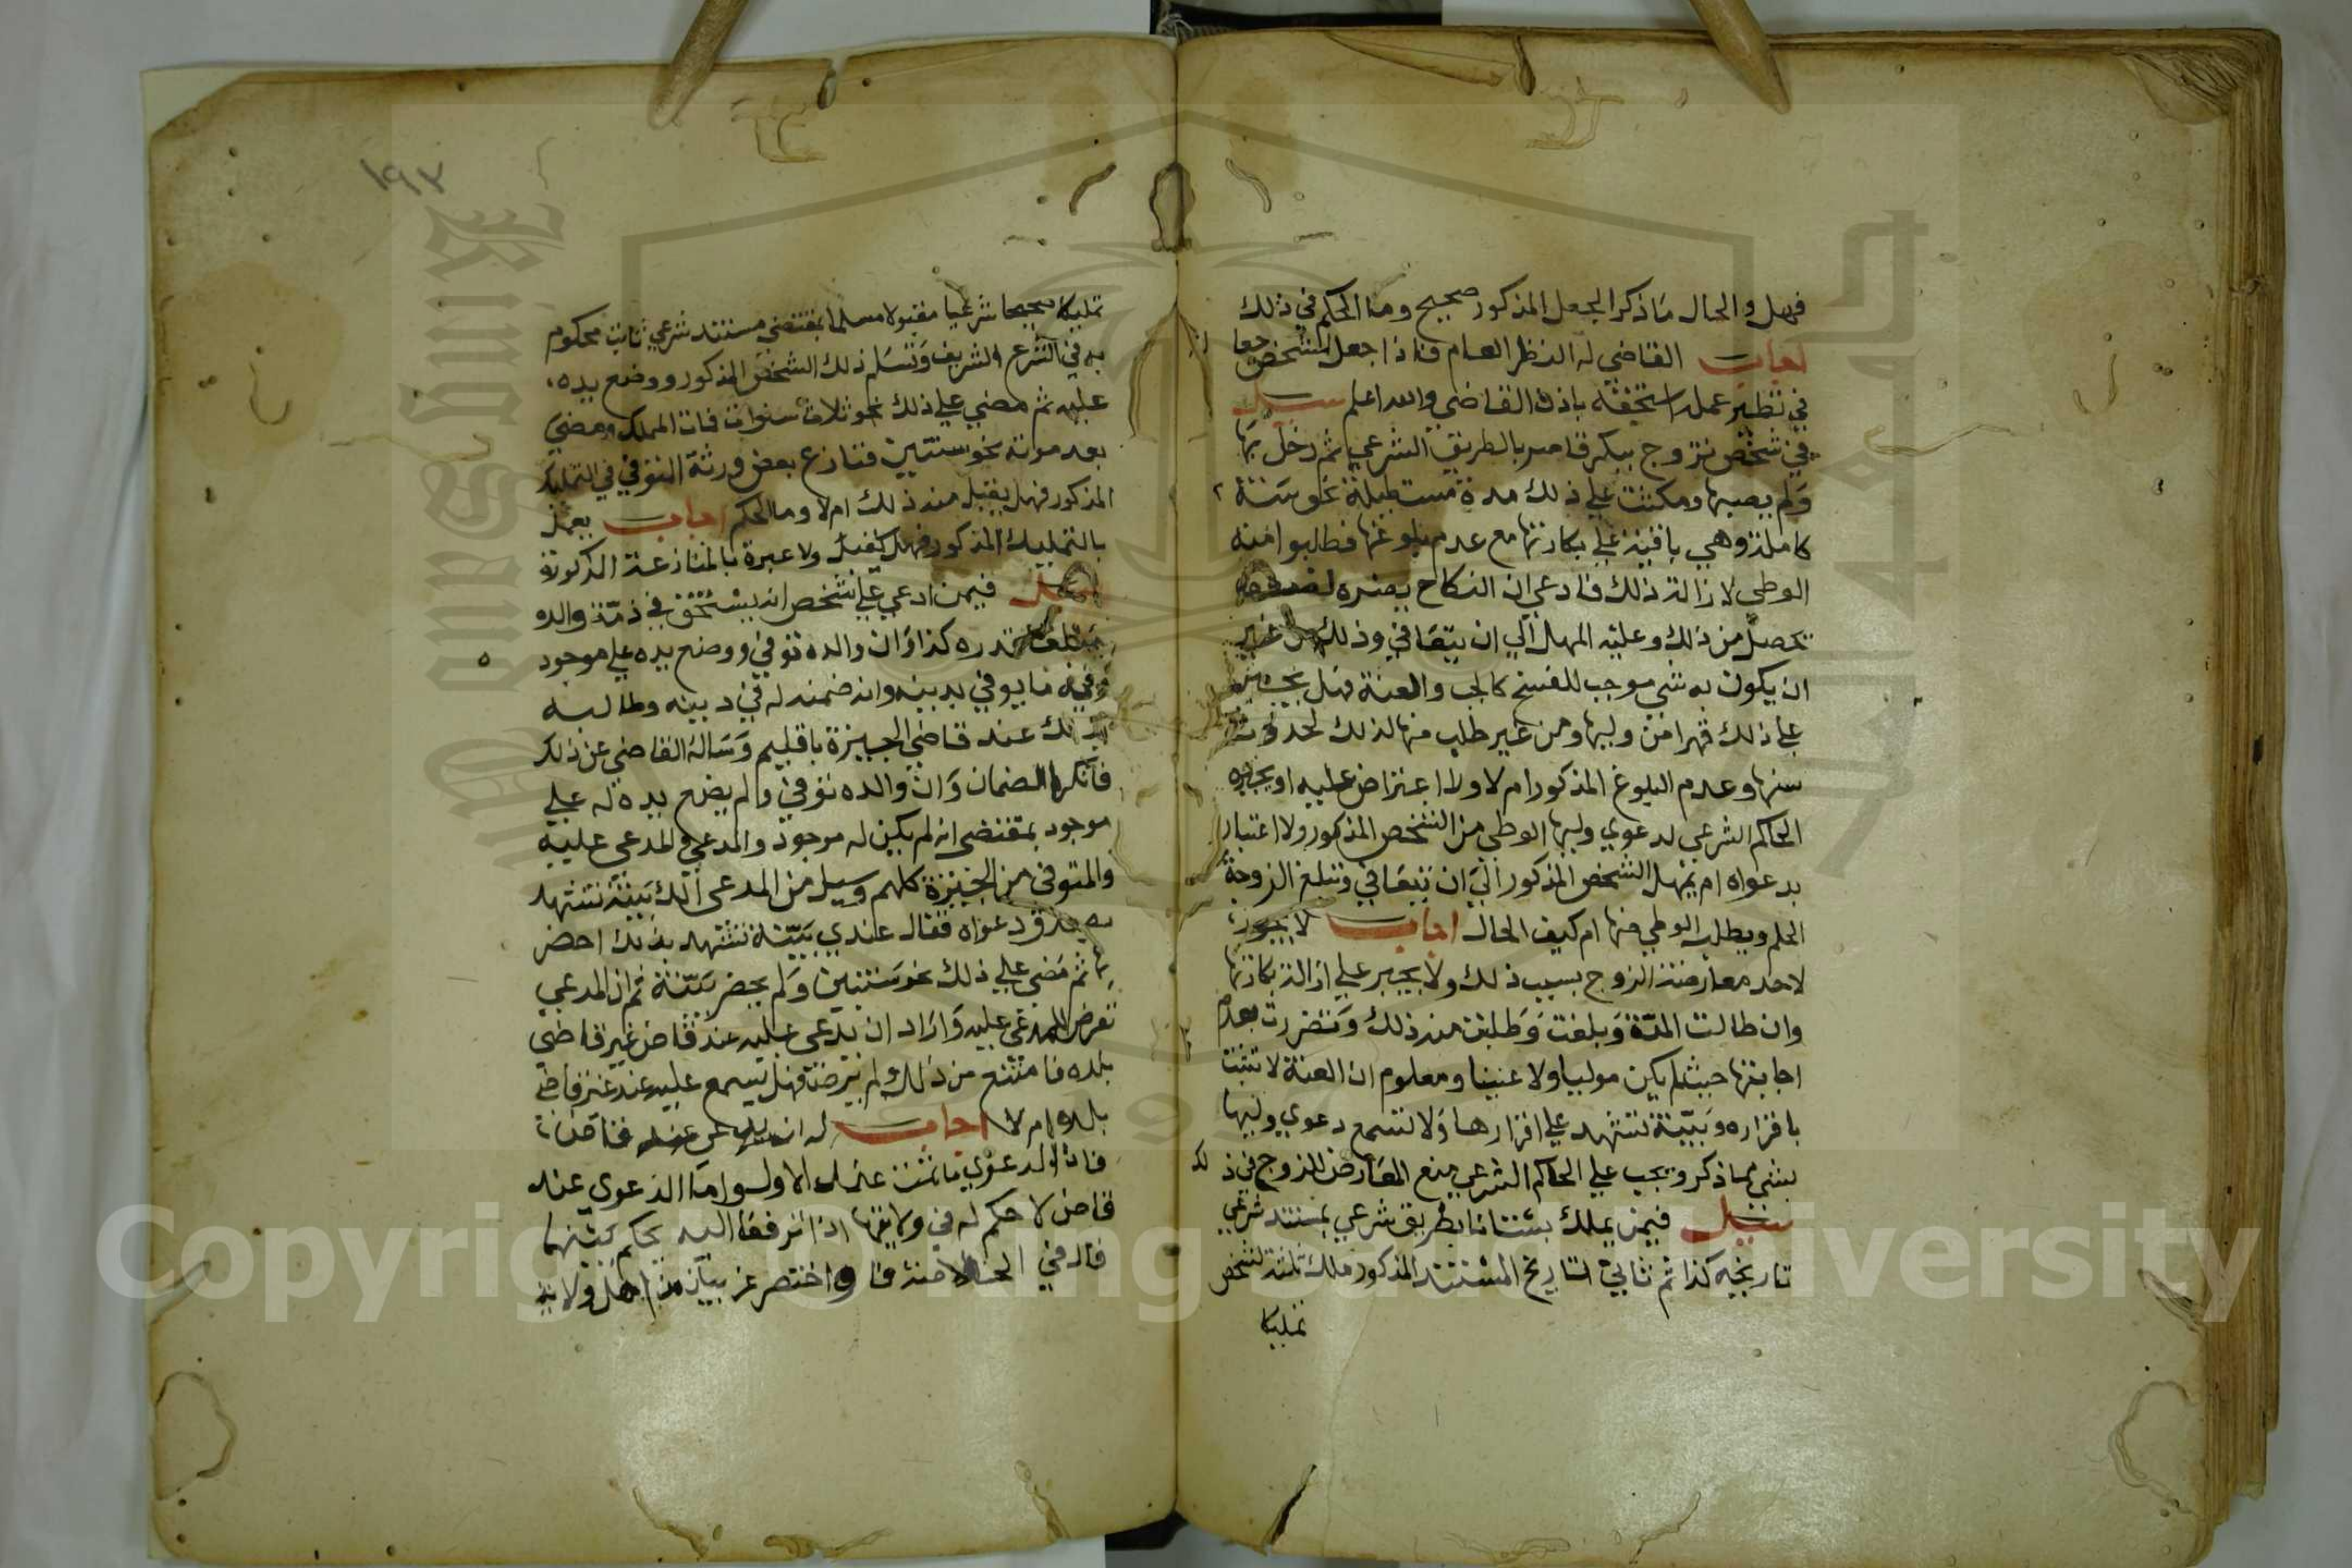 فهل والحال ما ذكر الجعل المذكور صحيح وما الحكم في ذلك
اجاب القاضي له النظر العام فاذا جعل لشخص جعلا
في نظير عمله استحقه باذن القاضي والله اعلم سيل
في شخص تزوج ببكر قاصر بالطريق الشرعي ثم دخل بها
ولم يصبها ومكثت علي ذلك مدة مستطيلة نحو سنة
كاملة وهي باقية علي بكارتها مع عدم بلوغها فطالبوا منه
الوطي لازالة ذلك فادعي ان النكاح يضره
تحصل من ذلك وعليه المهل الي ان يتعافي وذلك من غير
ان يكون به شي موجب للفسخ كالجب والعنة فهل يجبر
علي ذلك قهرا من وليها ومن غير طلب منها لذلك لحدوث
سنها وعدم البلوغ المذكور ام لا ولا اعتراض عليه او يجبره
الحاكم الشرعي لدعوي وليها الوطي من الشخص المذكور ولا اعتبار
بدعواه ام يمهل الشخص المذكور الي ان يتعافي وتبلغ الزوجة
الحلم ويطلب الوطي منها ام كيف الحال اجاب لا يجوز
لاحد معارضة الزوج بسبب ذلك ولا يجبر علي ازالة بكارتها
وان طالت المدة وبلغت وطلبت منه ذلك وتضررت بعدم
اجابتها حيث لم يكن موليا ولا عنينا ومعلوم ان العنة لا تثبت
باقراره وببينة تشهد علي اقرارها ولا تسمع دعوي وليها
بشي مما ذكر ويجب علي الحاكم الشرعي منع المعارض للزوج في ذلك
سيل فيمن يملك بستانا بطريق شرعي بمستند شرعي
تاريخه كذا ثم ثاني تاريخ المستند المذكور ملك ثلثه لشخص
تمليكا
١٩٣
تمليكا صحيحا شرعيا مقبولا مسلما بمقتضي مستند شرعي ثابت محكوم
به في الشرع الشريف وتسلم ذلك الشخص المذكور ووضع يده
عليه ثم مضي علي ذلك نحو ثلاث سنوات فمات المملك ومضي
بعد موته نحو سنتين فتنازع بعض ورثة المتوفي في التمليك
المذكور فهل يقبل منه ذلك ام لا وما الحكم اجاب يعمل
بالتمليك المذكور ولا عبرة بالمنازعة المذكورة
سيل فيمن ادعي علي شخص انه يستحق في ذمة والده
مبلغا قدره كذا وان والده توفي ووضع يده علي موجود
وفيه ما يوفي بدينه وانه ضمنه له في دينه وطالبه
بذلك عند قاضي الجيزة باقليم وساله القاضي عن ذلك
فانكر الضمان وان والده توفي ولم يضع يده له علي
موجود بمقتضي انه لم يكن له موجود والمدعي والمدعي عليه
والمتوفي من الجيزة كلهم وسيل من المدعي الك بينة تشهد
بصدق دعواه فقال عندي بينة تشهد بذلك احضر
بها ثم مضي علي ذلك نحو سنتين ولم يحضر ببينة ثم ان المدعي
تعرض للمدعي عليه واراد ان يدعي عليه عند قاض غير قاضي
بلده فامتنع من ذلك ولم يرضه فهل يسمع عليه عند غير قاضي
بلده ام لا اجاب له ان عند قاض
فان الدعوي ما تمت عند الاول واما الدعوي عند
قاض لا حكم له في ولايتها اذا ترافعا اليه يحكم بينهما
قال في واختصر عن بيان من اهل ولايته